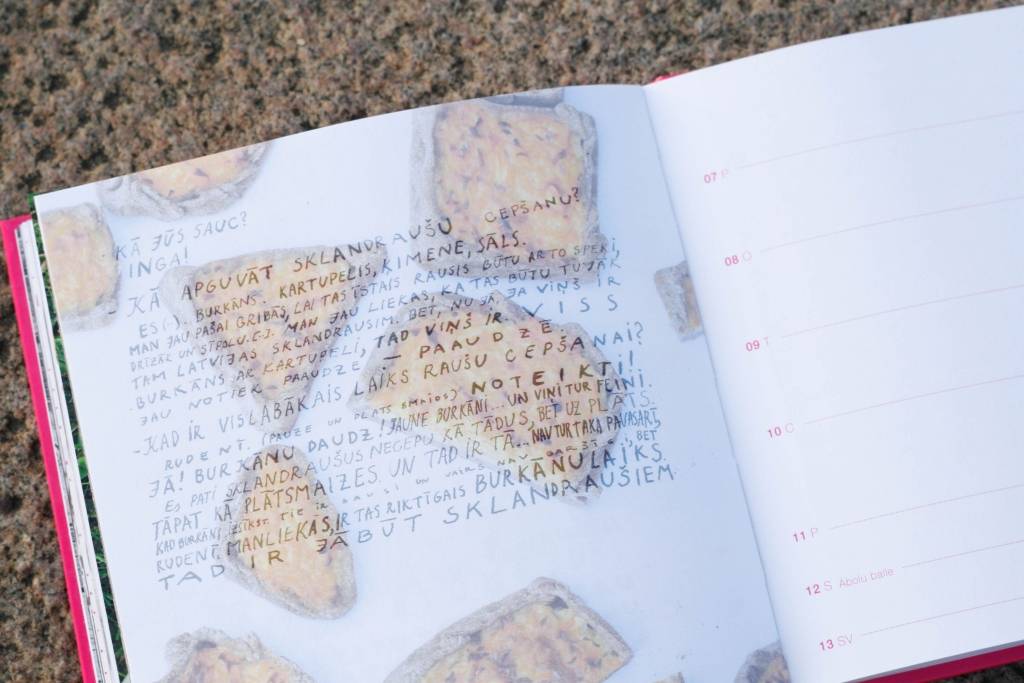 KĀ JŪS SAUC?
INGA!
-KĀ APGUVĀT SKLANDRAUŠU CEPŠANU?
ES (..) BURKĀNS. KARTUPELIS, ĶIMENE, SĀLS.
MAN JAU PAŠAI GRIBĀS, LAI TAS ĪSTAIS RAUSIS BŪTU AR TO SPEĶI,
DRĪZĀK UN SĪPOLU. MAN JAU LIEKAS, KA TAS BŪTU TUVĀK
TAM LATVIJAS SKLANDRAUSIM. BET, NU JĀ. JA VIŅŠ IR
BURKĀNS AR KARTUPELI, TAD VIŅŠ IR VISS
JAU NOTIEK PAAUDZĒ - PAAUDZĒ.
-KAD IR VISLABĀKAIS LAIKS RAUŠU CEPŠANAI?
RUDENĪ. (PAUZE UN PLATS SMAIDS) NOTEIKTI!
JĀ! BURKĀNU DAUDZ! JAUNE BURKĀNI... UN VIŅI TUR FEINI.
ES PATI SKLANDRAUŠUS NECEPU KĀ TĀDUS, BET UZ PLĀTS.
TĀPAT KĀ PLĀTSMAIZES UN TAD IR TĀ... NAV TUR TAKĀ PAVASARĪ,
KAD BURKĀNI TIE IR UN VAIRS NAV GARŠĪGI, BET
RUDENĪ, MAN LIEKAS, IR TAS RIKTĪGAIS BURKĀNU LAIKS.
TAD IR JĀBŪT SKLANDRAUŠIEM
07 P
08 O
09 T
10 C
11 P
12 S Ābolu balle
13 SV